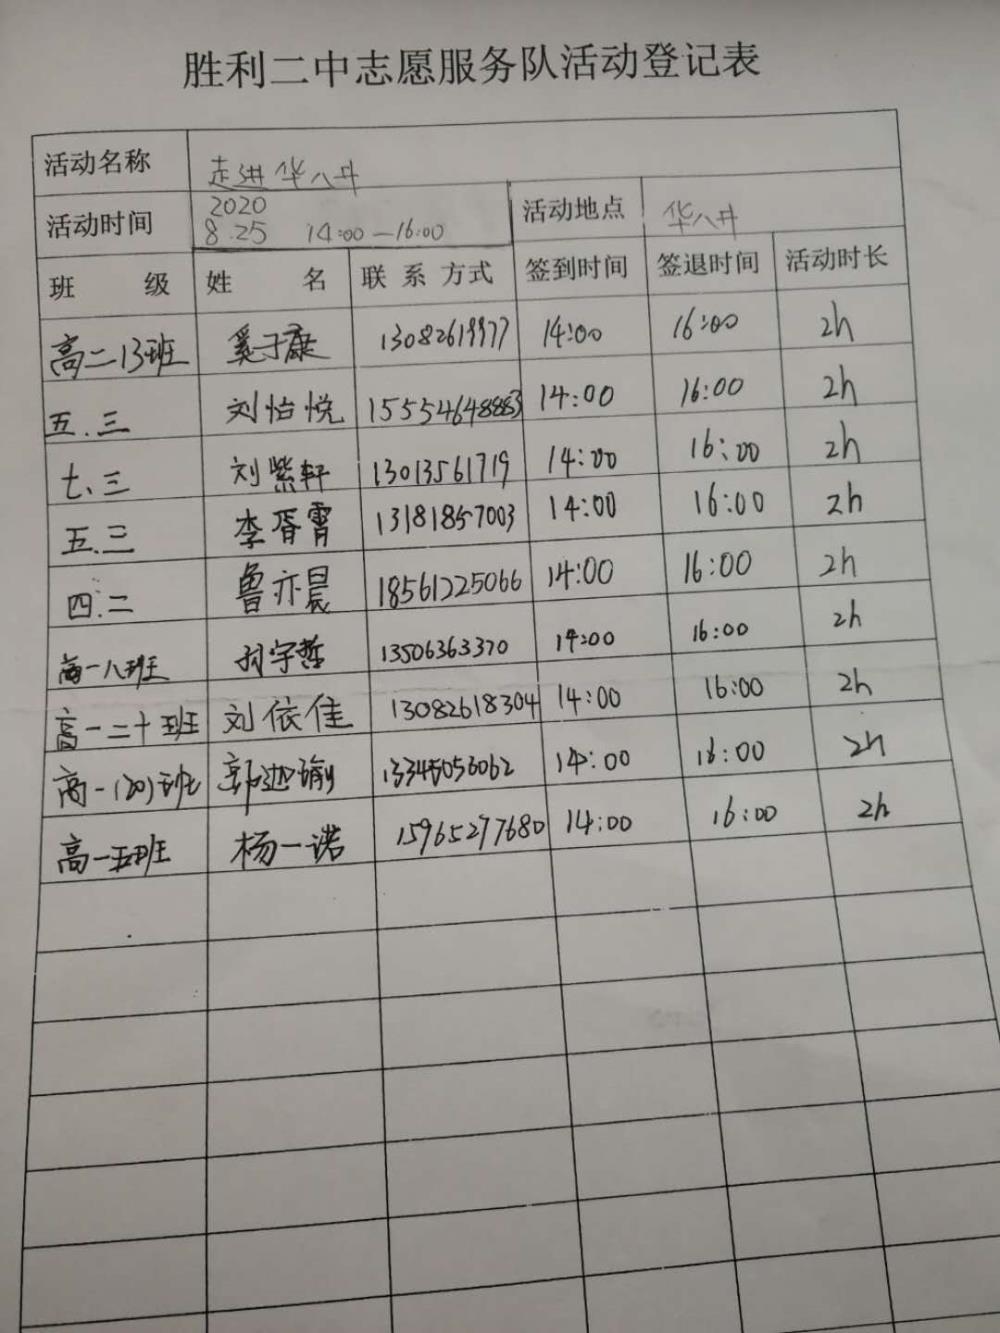 胜利二中志愿服务队活动登记表
活动名称 走进华八井
活动时间 2020 8.25 14:00—16:00 活动地点 华八井
班 级 姓 名 联系方式 签到时间 签退时间 活动时长
高二13班 奚子康 13082619977 14:00 16:00 2h
五.三 刘怡悦 15554648883 14:00 16:00 2h
七、三 刘紫轩 13013561719 14:00 16:00 2h
五.三 李胥霄 13181857003 14:00 16:00 2h
四.二 鲁亦晨 18561225066 14:00 16:00 2h
高一八班 宇哲 13506363370 14:00 16:00 2h
高一二十班 刘依佳 13082618304 14:00 16:00 2h
高一(20)班 郭迦瑜 14:00 16:00 2h
高一五班 杨一诺 15965297680 14:00 16:00 2h